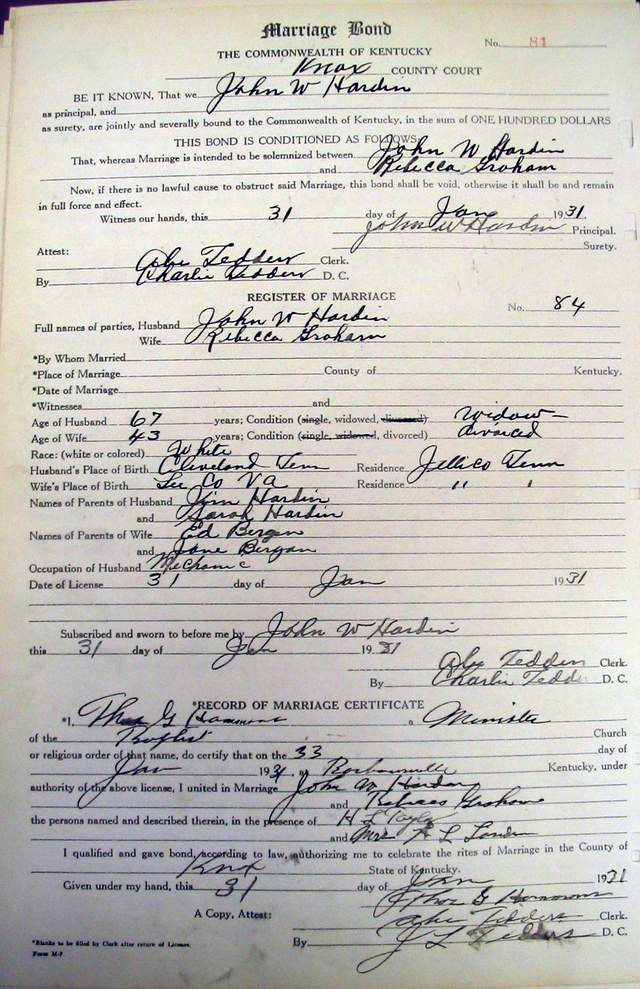 Marriage Bond
No. 81
THE COMMONWEALTH OF KENTUCKY
Knox COUNTY COURT
BE IT KNOWN, That we John W Hardin
as principal, and
as surety, are jointly and severally bound to the Commonwealth of Kentucky, in the sum of ONE HUNDRED DOLLARS
THIS BOND IS CONDITIONED AS FOLLOWS
That, whereas Marriage is intended to be solemnized between John W Hardin
and Rebecca Graham
Now, if there is no lawful cause to obstruct said Marriage, this bond shall be void, otherwise it shall be and remain
in full force and effect.
Witness our hands, this 31 day of Jan 1931.
John W Hardin Principal.
Surety.
Attest:
Abe Tedders Clerk.
By Charlie Tedders D. C.
REGISTER OF MARRIAGE
No. 84
Full names of parties, Husband John W Hardin
Wife Rebecca Graham
*By Whom Married
*Place of Marriage County of Kentucky.
*Date of Marriage
*Witnesses and
Age of Husband 67 years; Condition (single, widowed, divorced) Widow
Age of Wife 43 years; Condition (single, widowed, divorced) divorced
Race: (white or colored) White
Husband's Place of Birth Cleveland Tenn Residence Jellico Tenn
Wife's Place of Birth Lee Co VA Residence " "
Names of Parents of Husband Jim Hardin
and Sarah Hardin
Names of Parents of Wife Ed Bergan
and Jane Bergan
Occupation of Husband Mechanic
Date of License 31 day of Jan 1931
Subscribed and sworn to before me by John W Hardin
this 31 day of Jan 1931
Abe Tedders Clerk.
By Charlie Tedders D. C.
*RECORD OF MARRIAGE CERTIFICATE
*I, Thos G Hammons a Minister
of the Baptist Church
or religious order of that name, do certify that on the 33 day of
Jan 1931, Barbourville Kentucky, under
authority of the above license, I united in Marriage John W Hardin
and Rebecca Graham
the persons named and described therein, in the presence of H L Taylor
and Mrs A L
I qualified and gave bond, according to law, authorizing me to celebrate the rites of Marriage in the County of
Knox State of Kentucky.
Given under my hand, this 31 day of Jan 1931
Thos G Hammons
A Copy, Attest: Abe Tedders Clerk.
By J L Tedders D. C.
*Blanks to be filled by Clerk after return of License.
Form M-7